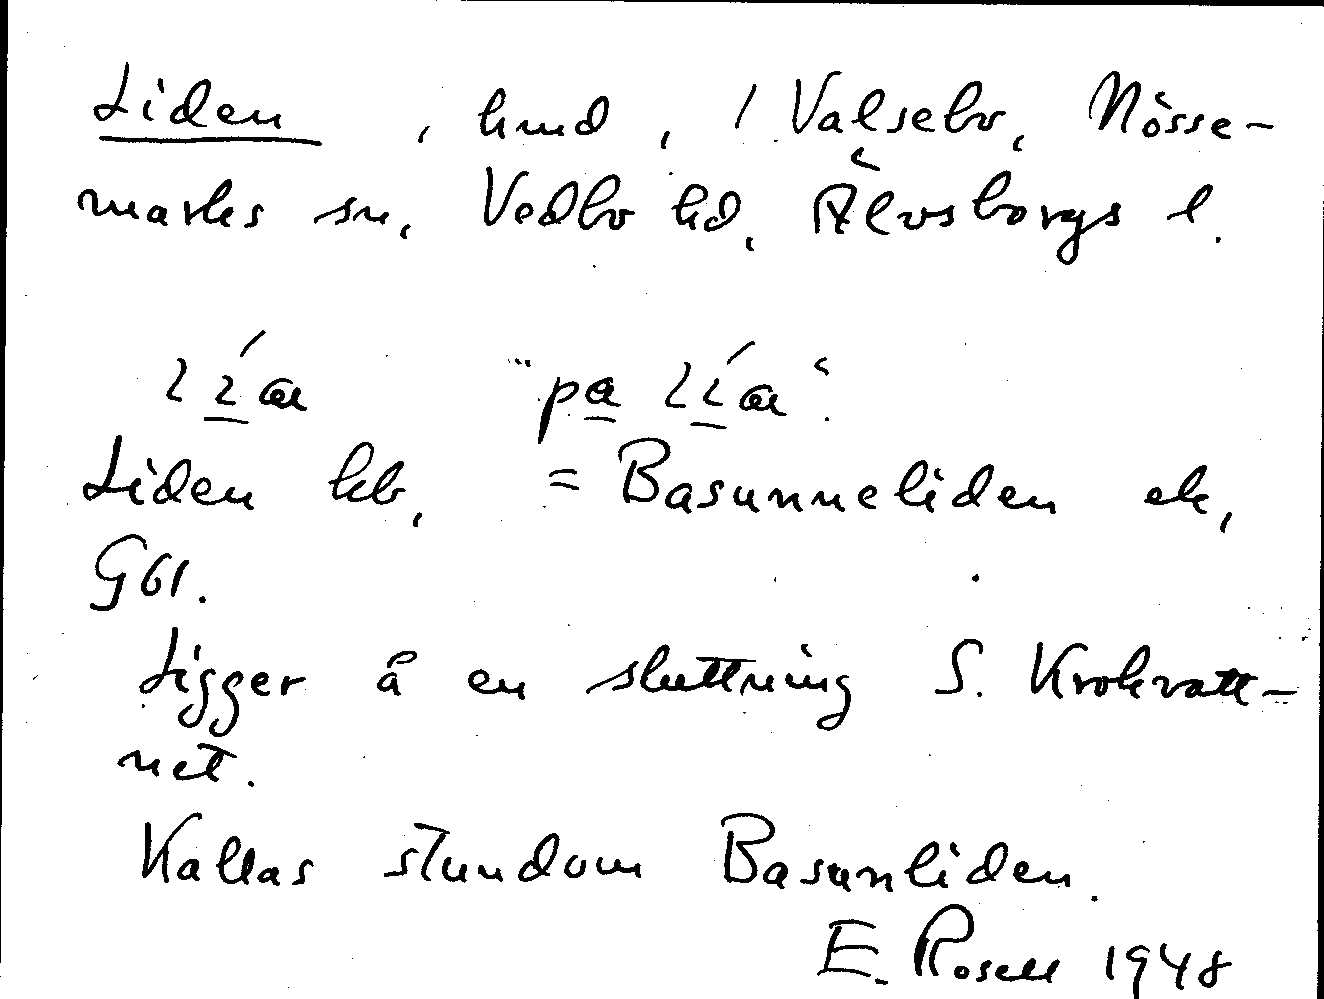 Liden, hmd, i Valsebo, Nösse-
marks sn, Vedbo hd, Älvsborgs l.
"på
Liden kb, = Basunneliden ek,
G61.
Ligger å en sluttning S. Krokvatt-
net.
Kallas stundom Basunliden.
E. Rosell 1948